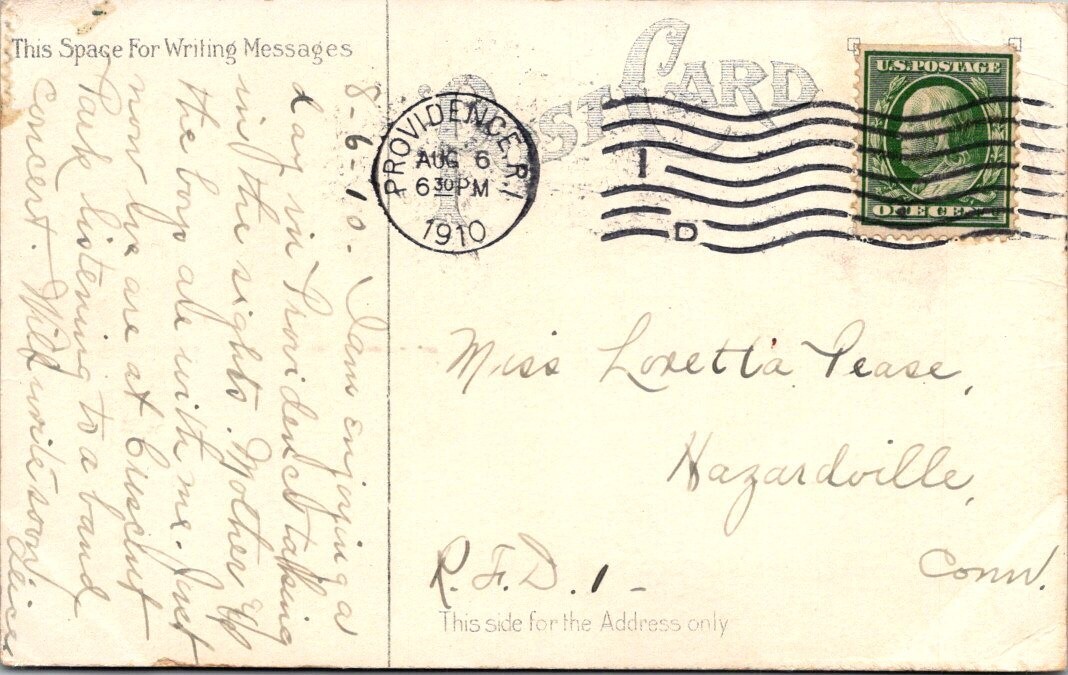 This Space For Writing Messages
POST CARD
U.S. POSTAGE
ONE CENT
PROVIDENCE, R.I.
AUG 6
6 30 PM
1910
I
D
8-6-10. I am enjoying a
day in Providence taking
in the sights. Mother &
the boys are with me. Just
now we are at Crescent
Park listening to a band
concert. Will write soon.
Miss Loretta Pease,
Hazardville,
Conn.
R.F.D. 1-
This side for the Address only